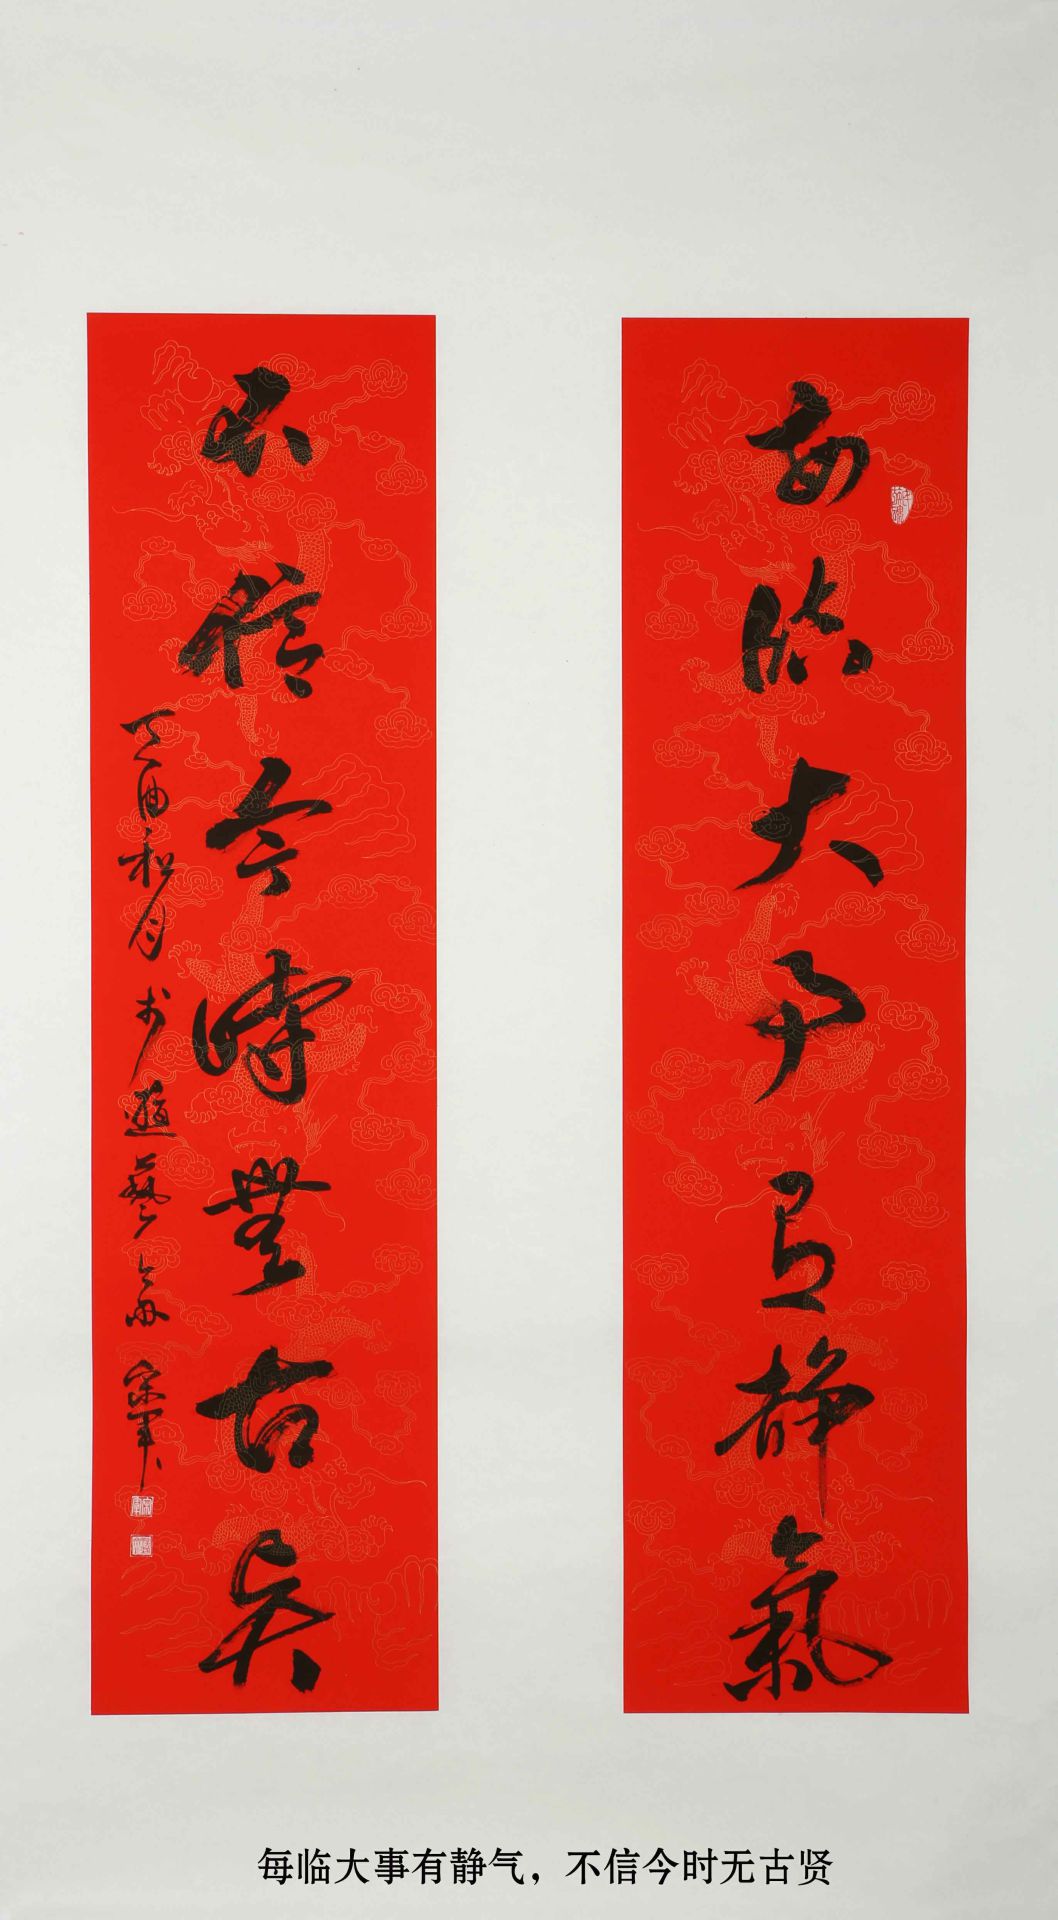 每臨大事有靜氣
不信今時無古賢
丁酉和月於遊藝齋宋軍
每临大事有静气，不信今时无古贤